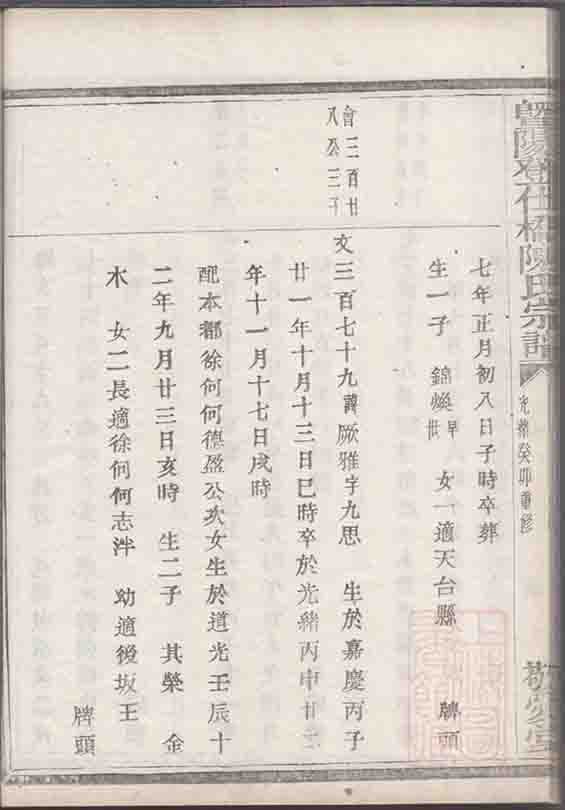 陽登仕橋陳氏宗譜
光緒癸卯重修
敬愛堂
七年正月初八日子時卒葬
生一子 錦煥早世 女一適天台縣 牌頭
會三百廿
八公三子
文三百七十九諱厥雅字九思 生於嘉慶丙子
廿一年十月十三日巳時卒於光緒丙申廿二
年十一月十七日戌時
配本都徐何何德盈公次女生於道光壬辰十
二年九月廿三日亥時 生二子 其榮 金
水 女二長適徐何何志泮 幼適後坂王
牌頭